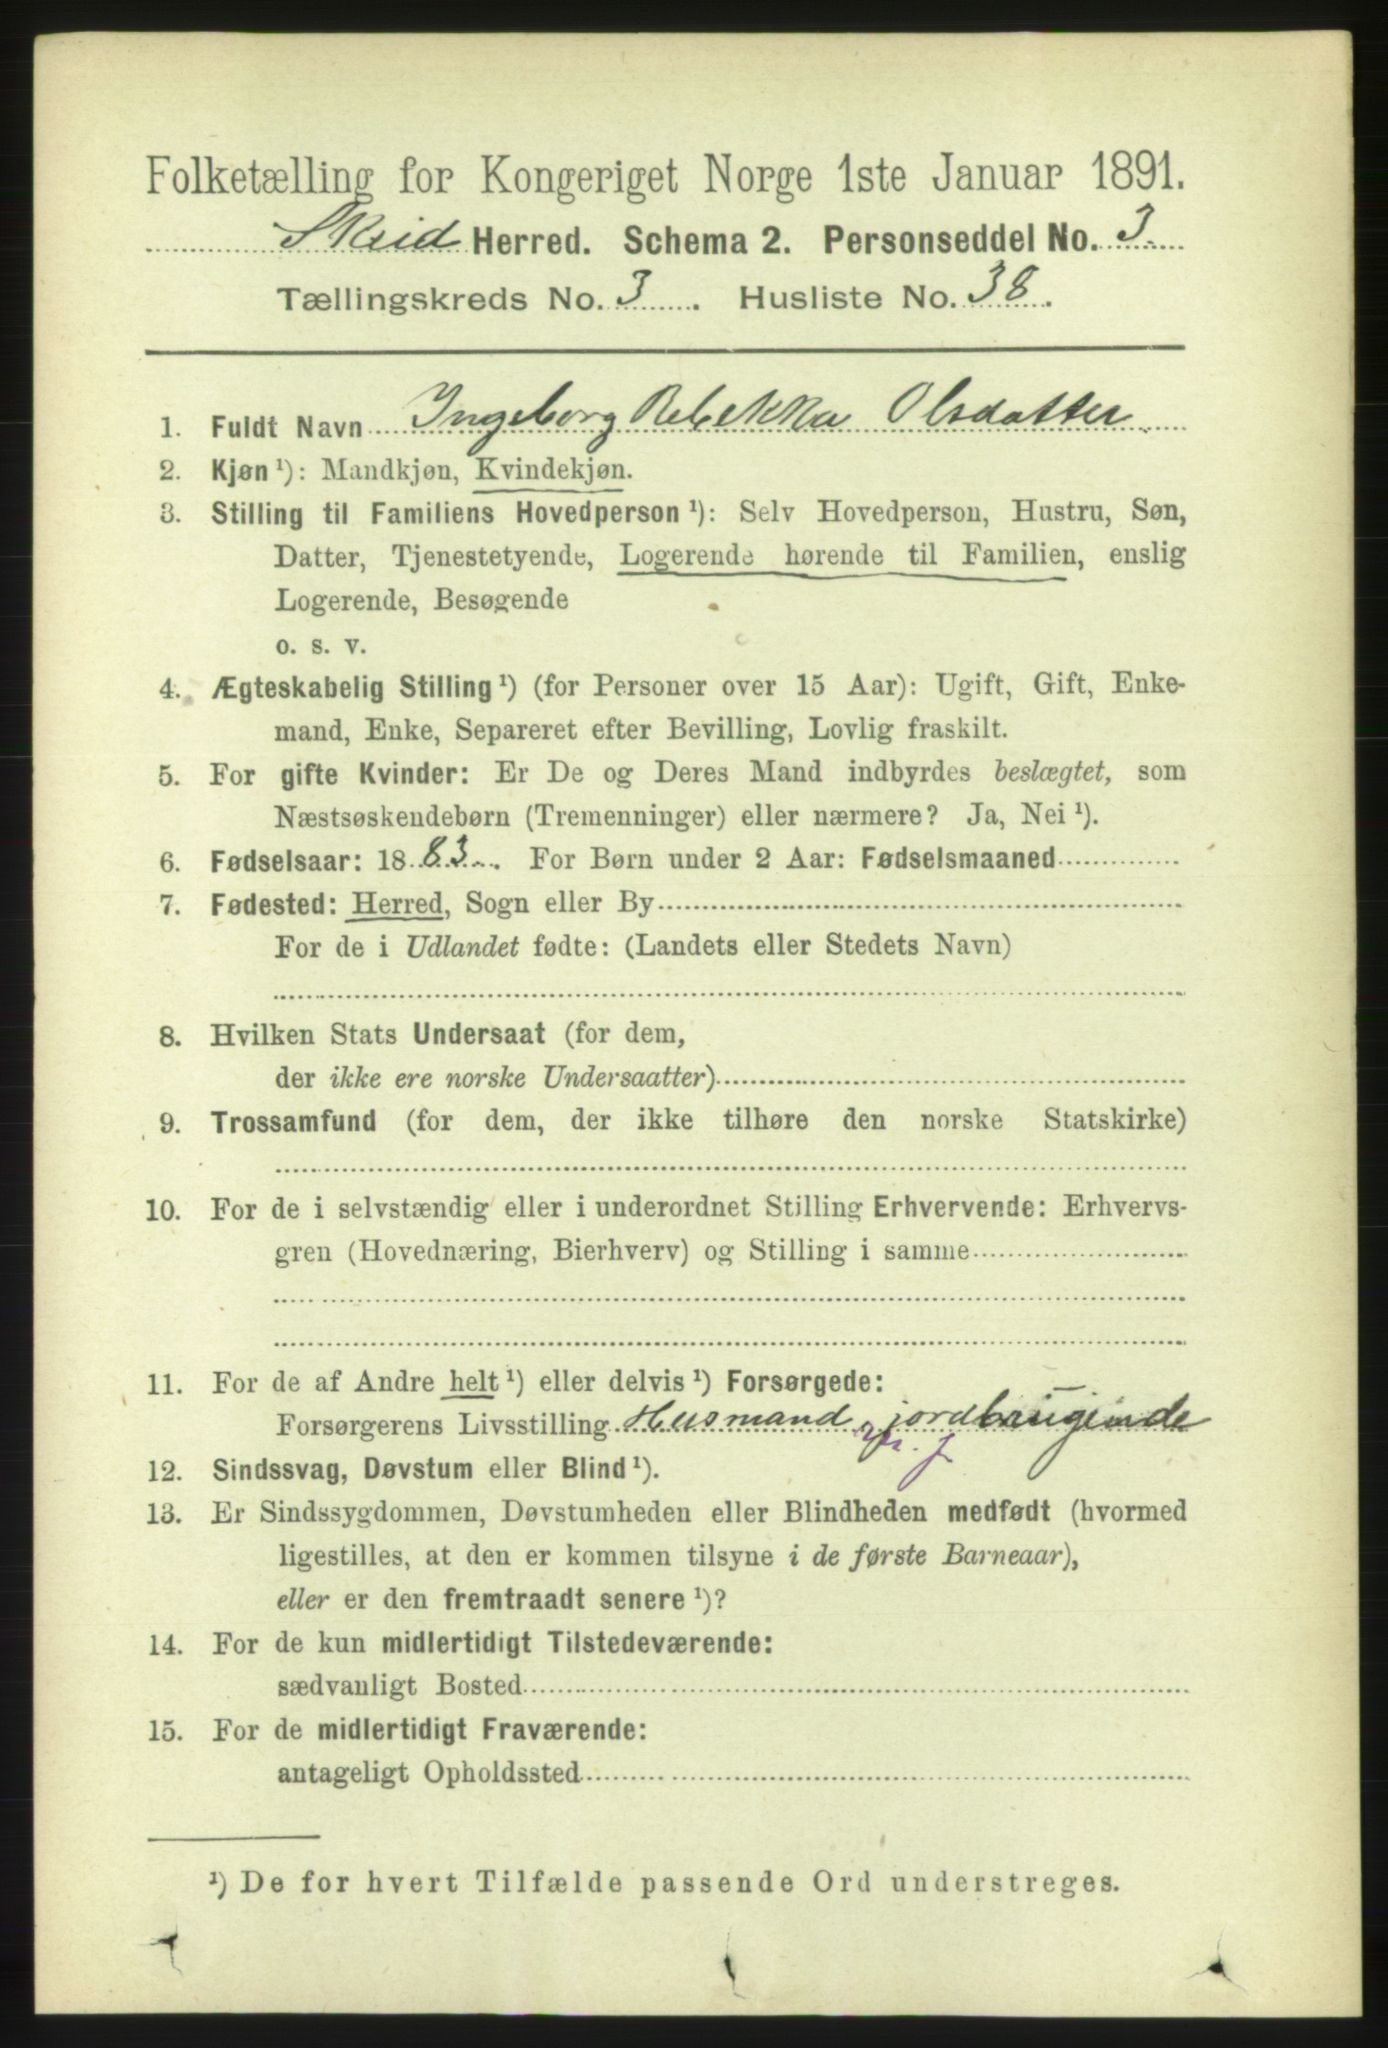 Folketælling for Kongeriget Norge 1ste Januar 1891.
Skeid Herred. Schema 2. Personseddel No. 3
Tællingskreds No. 3. Husliste No. 38.
1. Fuldt Navn Ingeborg Rebekka Olsdatter
2. Kjøn ¹): Mandkjøn, Kvindekjøn.
3. Stilling til Familiens Hovedperson ¹): Selv Hovedperson, Hustru, Søn,
Datter, Tjenestetyende, Logerende hørende til Familien, enslig
Logerende, Besøgende
o. s. v.
4. Ægteskabelig Stilling ¹) (for Personer over 15 Aar): Ugift, Gift, Enke-
mand, Enke, Separeret efter Bevilling, Lovlig fraskilt.
5. For gifte Kvinder: Er De og Deres Mand indbyrdes beslægtet, som
Næstsøskendebørn (Tremenninger) eller nærmere? Ja, Nei ¹).
6. Fødselsaar: 1883. For Børn under 2 Aar: Fødselsmaaned
7. Fødested: Herred, Sogn eller By
For de i Udlandet fødte: (Landets eller Stedets Navn)
8. Hvilken Stats Undersaat (for dem,
der ikke ere norske Undersaatter)
9. Trossamfund (for dem, der ikke tilhøre den norske Statskirke)
10. For de i selvstændig eller i underordnet Stilling Erhvervende: Erhvervs-
gren (Hovednæring, Bierhverv) og Stilling i samme
11. For de af Andre helt ¹) eller delvis ¹) Forsørgede:
Forsørgerens Livsstilling Husmand, jordbrugende
12. Sindssvag, Døvstum eller Blind ¹).
13. Er Sindssygdommen, Døvstumheden eller Blindheden medfødt (hvormed
ligestilles, at den er kommen tilsyne i de første Barneaar),
eller er den fremtraadt senere ¹)?
14. For de kun midlertidigt Tilstedeværende:
sædvanligt Bosted
15. For de midlertidigt Fraværende:
antageligt Opholdssted
¹) De for hvert Tilfælde passende Ord understreges.